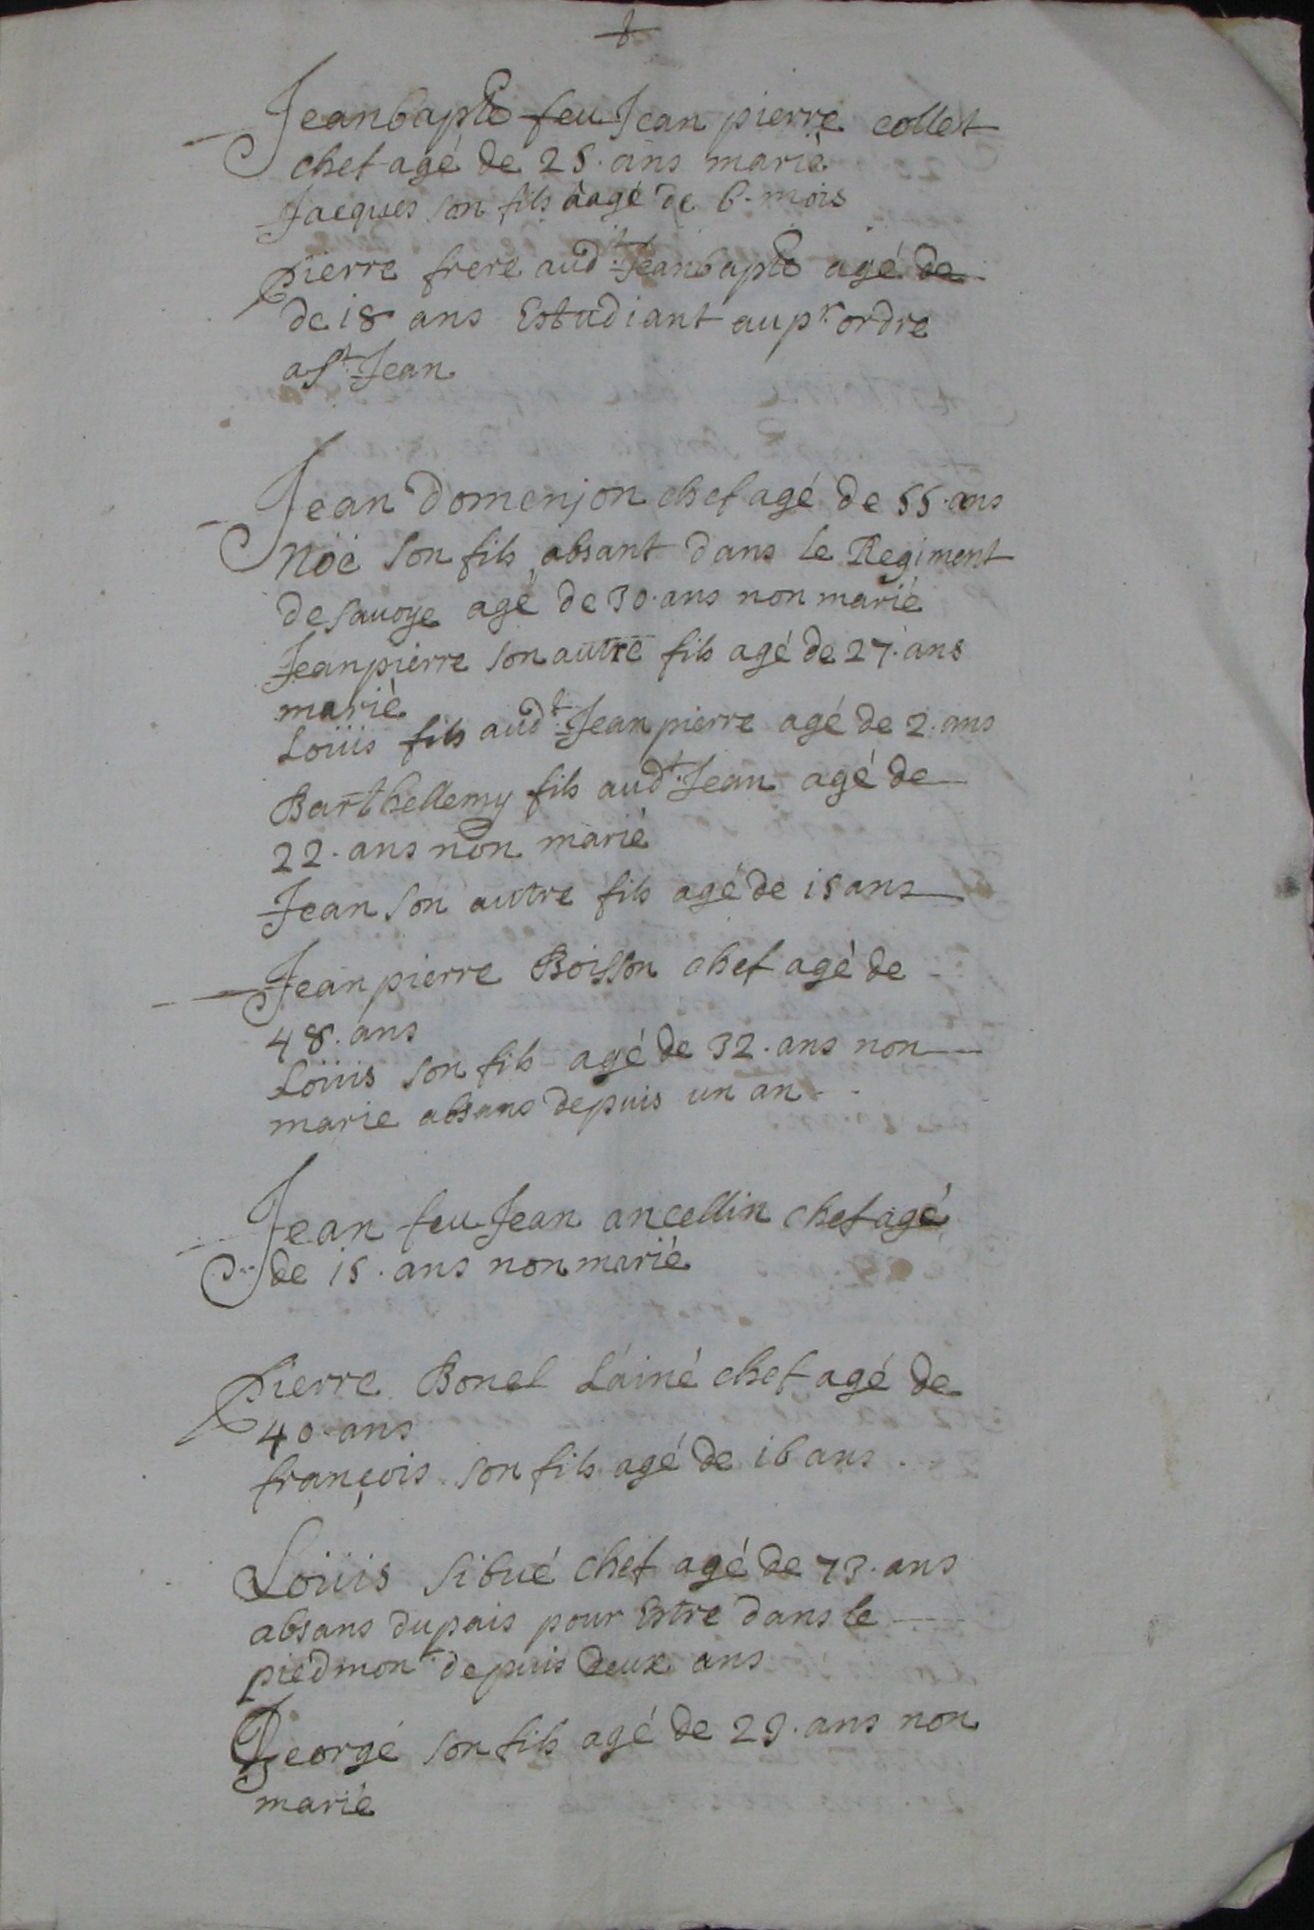 Jeanbapte feu Jean pierre collet
chef agé de 25. ans marié
Jacques son fils aagé de 6. mois
pierre frere audt Jeanbapte agé de
de 18 ans Estudiant au pr ordre
a St Jean
Jean Domenjon chef agé de 55. ans
Nöé son fils absant dans le Regiment
de savoye agé de 30. ans non marié
Jeanpierre son autre fils agé de 27. ans
marié
Loüis fils audt Jean pierre agé de 2. ans
Barthellemy fils audt Jean agé de
22. ans non marié
Jean son autre fils agé de 15 ans
Jeanpierre Boisson chef agé de
48. ans
Loüis son fils agé de 32. ans non
marie absans depuis un an
Jean feu Jean ancellin chef agé
de 15. ans non marié
Pierre Bonel L'ainé chef agé de
40. ans
françois son fils agé de 16 ans
Loüis sibué chef agé de 73. ans
absans du pais pour Estre dans le
piedmont depuis deux ans
Georgé son fils agé de 29. ans non
marié